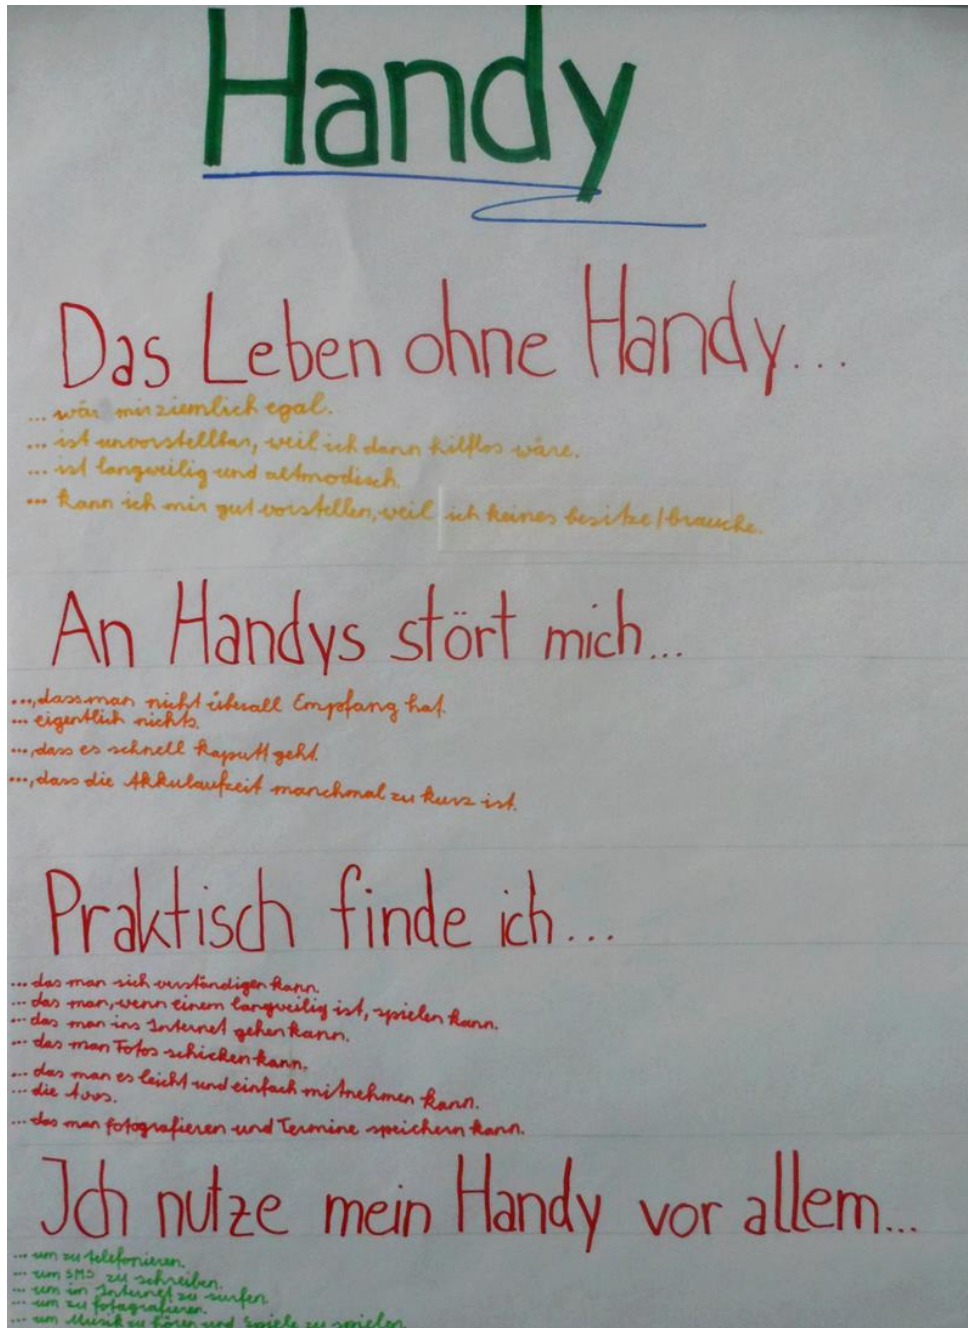 Handy
Das Leben ohne Handy...
... wär mir ziemlich egal.
... ist unvorstellbar, weil ich dann hilflos wäre.
... ist langweilig und altmodisch.
... kann ich mir gut vorstellen, weil ich keines besitze/brauche.
An Handys stört mich...
..., dass man nicht überall Empfang hat.
... eigentlich nichts.
..., dass es schnell kaputt geht.
..., dass die Akkulaufzeit manchmal zu kurz ist.
Praktisch finde ich...
... das man sich verständigen kann.
... das man, wenn einem langweilig ist, spielen kann.
... das man ins Internet gehen kann.
... das man Fotos schicken kann.
... das man es leicht und einfach mitnehmen kann.
... die
... das man fotografieren und Termine speichern kann.
Ich nutze mein Handy vor allem...
... um zu telefonieren.
... um SMS zu schreiben.
... um im Internet zu surfen.
... um zu fotagrafieren.
... um Musik zu hören und Spiele zu spielen.